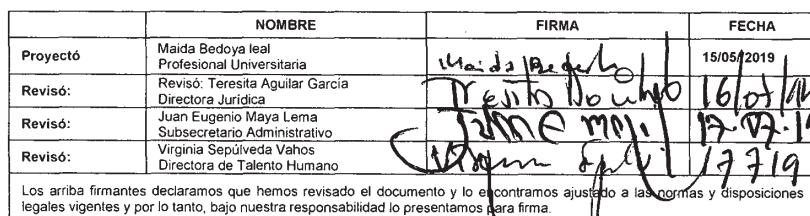 NOMBRE FIRMA FECHA
Proyectó Maida Bedoya leal
Profesional Universitaria Maida Bedoya 15/05/2019
Revisó: Revisó: Teresita Aguilar García
Directora Jurídica
Revisó: Juan Eugenio Maya Lema
Subsecretario Administrativo
Revisó: Virginia Sepúlveda Vahos
Directora de Talento Humano 17719
Los arriba firmantes declaramos que hemos revisado el documento y lo encontramos ajustado a las normas y disposiciones
legales vigentes y por lo tanto, bajo nuestra responsabilidad lo presentamos para firma.